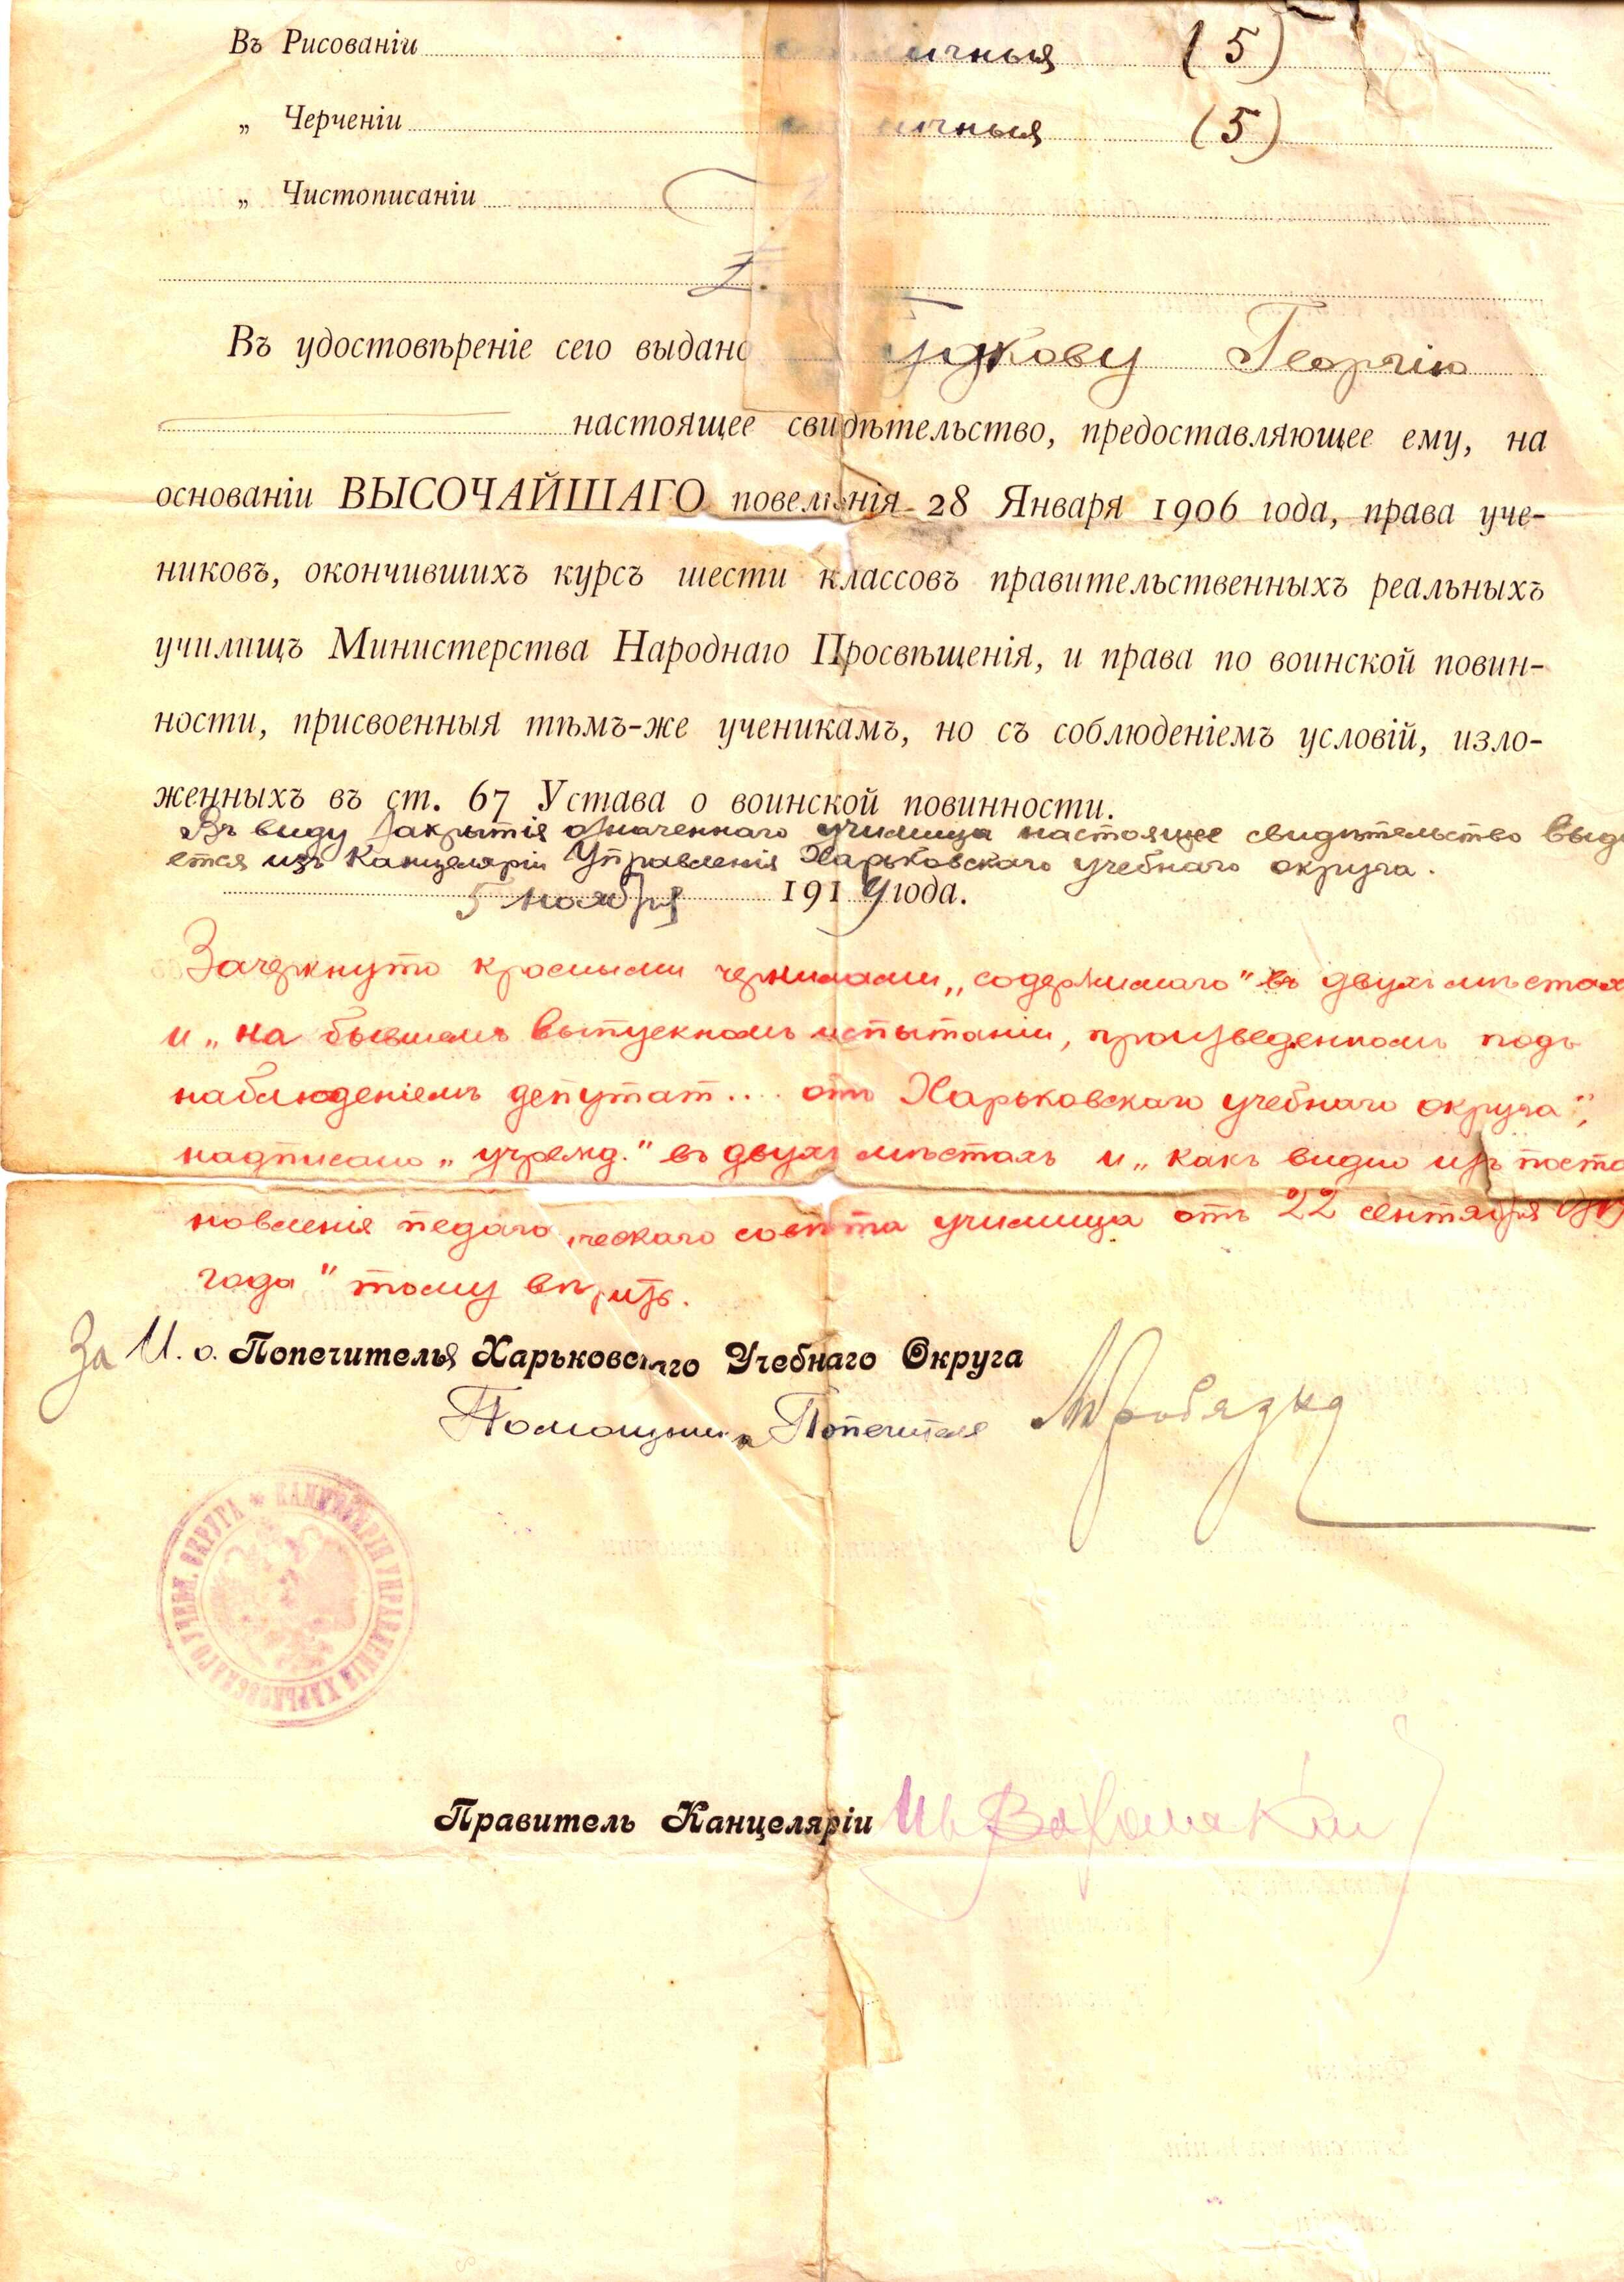 Въ Рисованіи ичныя (5)
„ Черченіи ичныя (5)
„ Чистописаніи
Въ удостовѣреніе сего выдано Георгію
настоящее свидѣтельство, предоставляющее ему, на
основаніи ВЫСОЧАЙШАГО повелѣнія 28 Января 1906 года, права уче-
никовъ, окончившихъ курсъ шести классовъ правительственныхъ реальныхъ
училищъ Министерства Народнаго Просвѣщенія, и права по воинской повин-
ности, присвоенныя тѣмъ-же ученикамъ, но съ соблюденіемъ условій, изло-
женныхъ въ ст. 67 Устава о воинской повинности.
Въ виду закрытія означеннаго училища настоящее свидѣтельство выда
ется изъ Канцеляріи Управленія Харьковскаго учебнаго округа.
5 ноября 1919 года.
Зачеркнуто красными чернилами „содержимаго" въ двухъ мѣстахъ
и „на бывшемъ выпускномъ испытаніи, произведенномъ подъ
наблюденіемъ депутат... отъ Харьковскаго учебнаго округа",
надписано „учрежд." въ двухъ мѣстахъ и „какъ видно изъ поста
новленія педагогическаго совѣта училища отъ 22 сентября
года" тому вѣрить.
За И. о. Попечителя Харьковскаго Учебнаго Округа
Помощникъ Попечителя
КАНЦЕЛЯРІЯ УПРАВЛЕНІЯ ХАРЬКОВСКАГО УЧЕБН. ОКРУГА
Правитель Канцеляріи